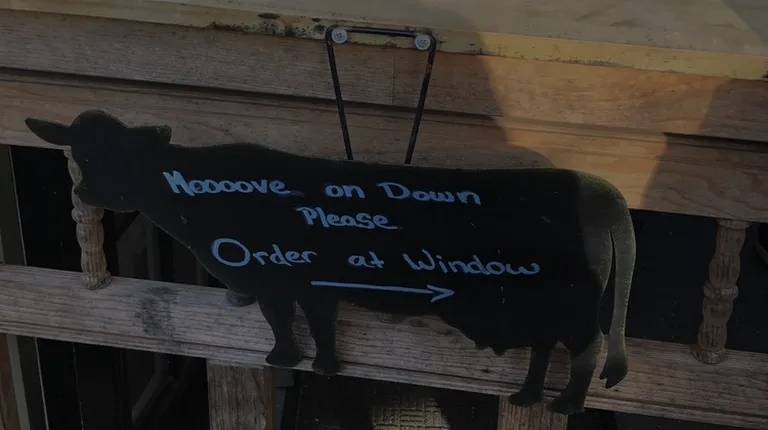 Moooove on Down
Please
Order at Window